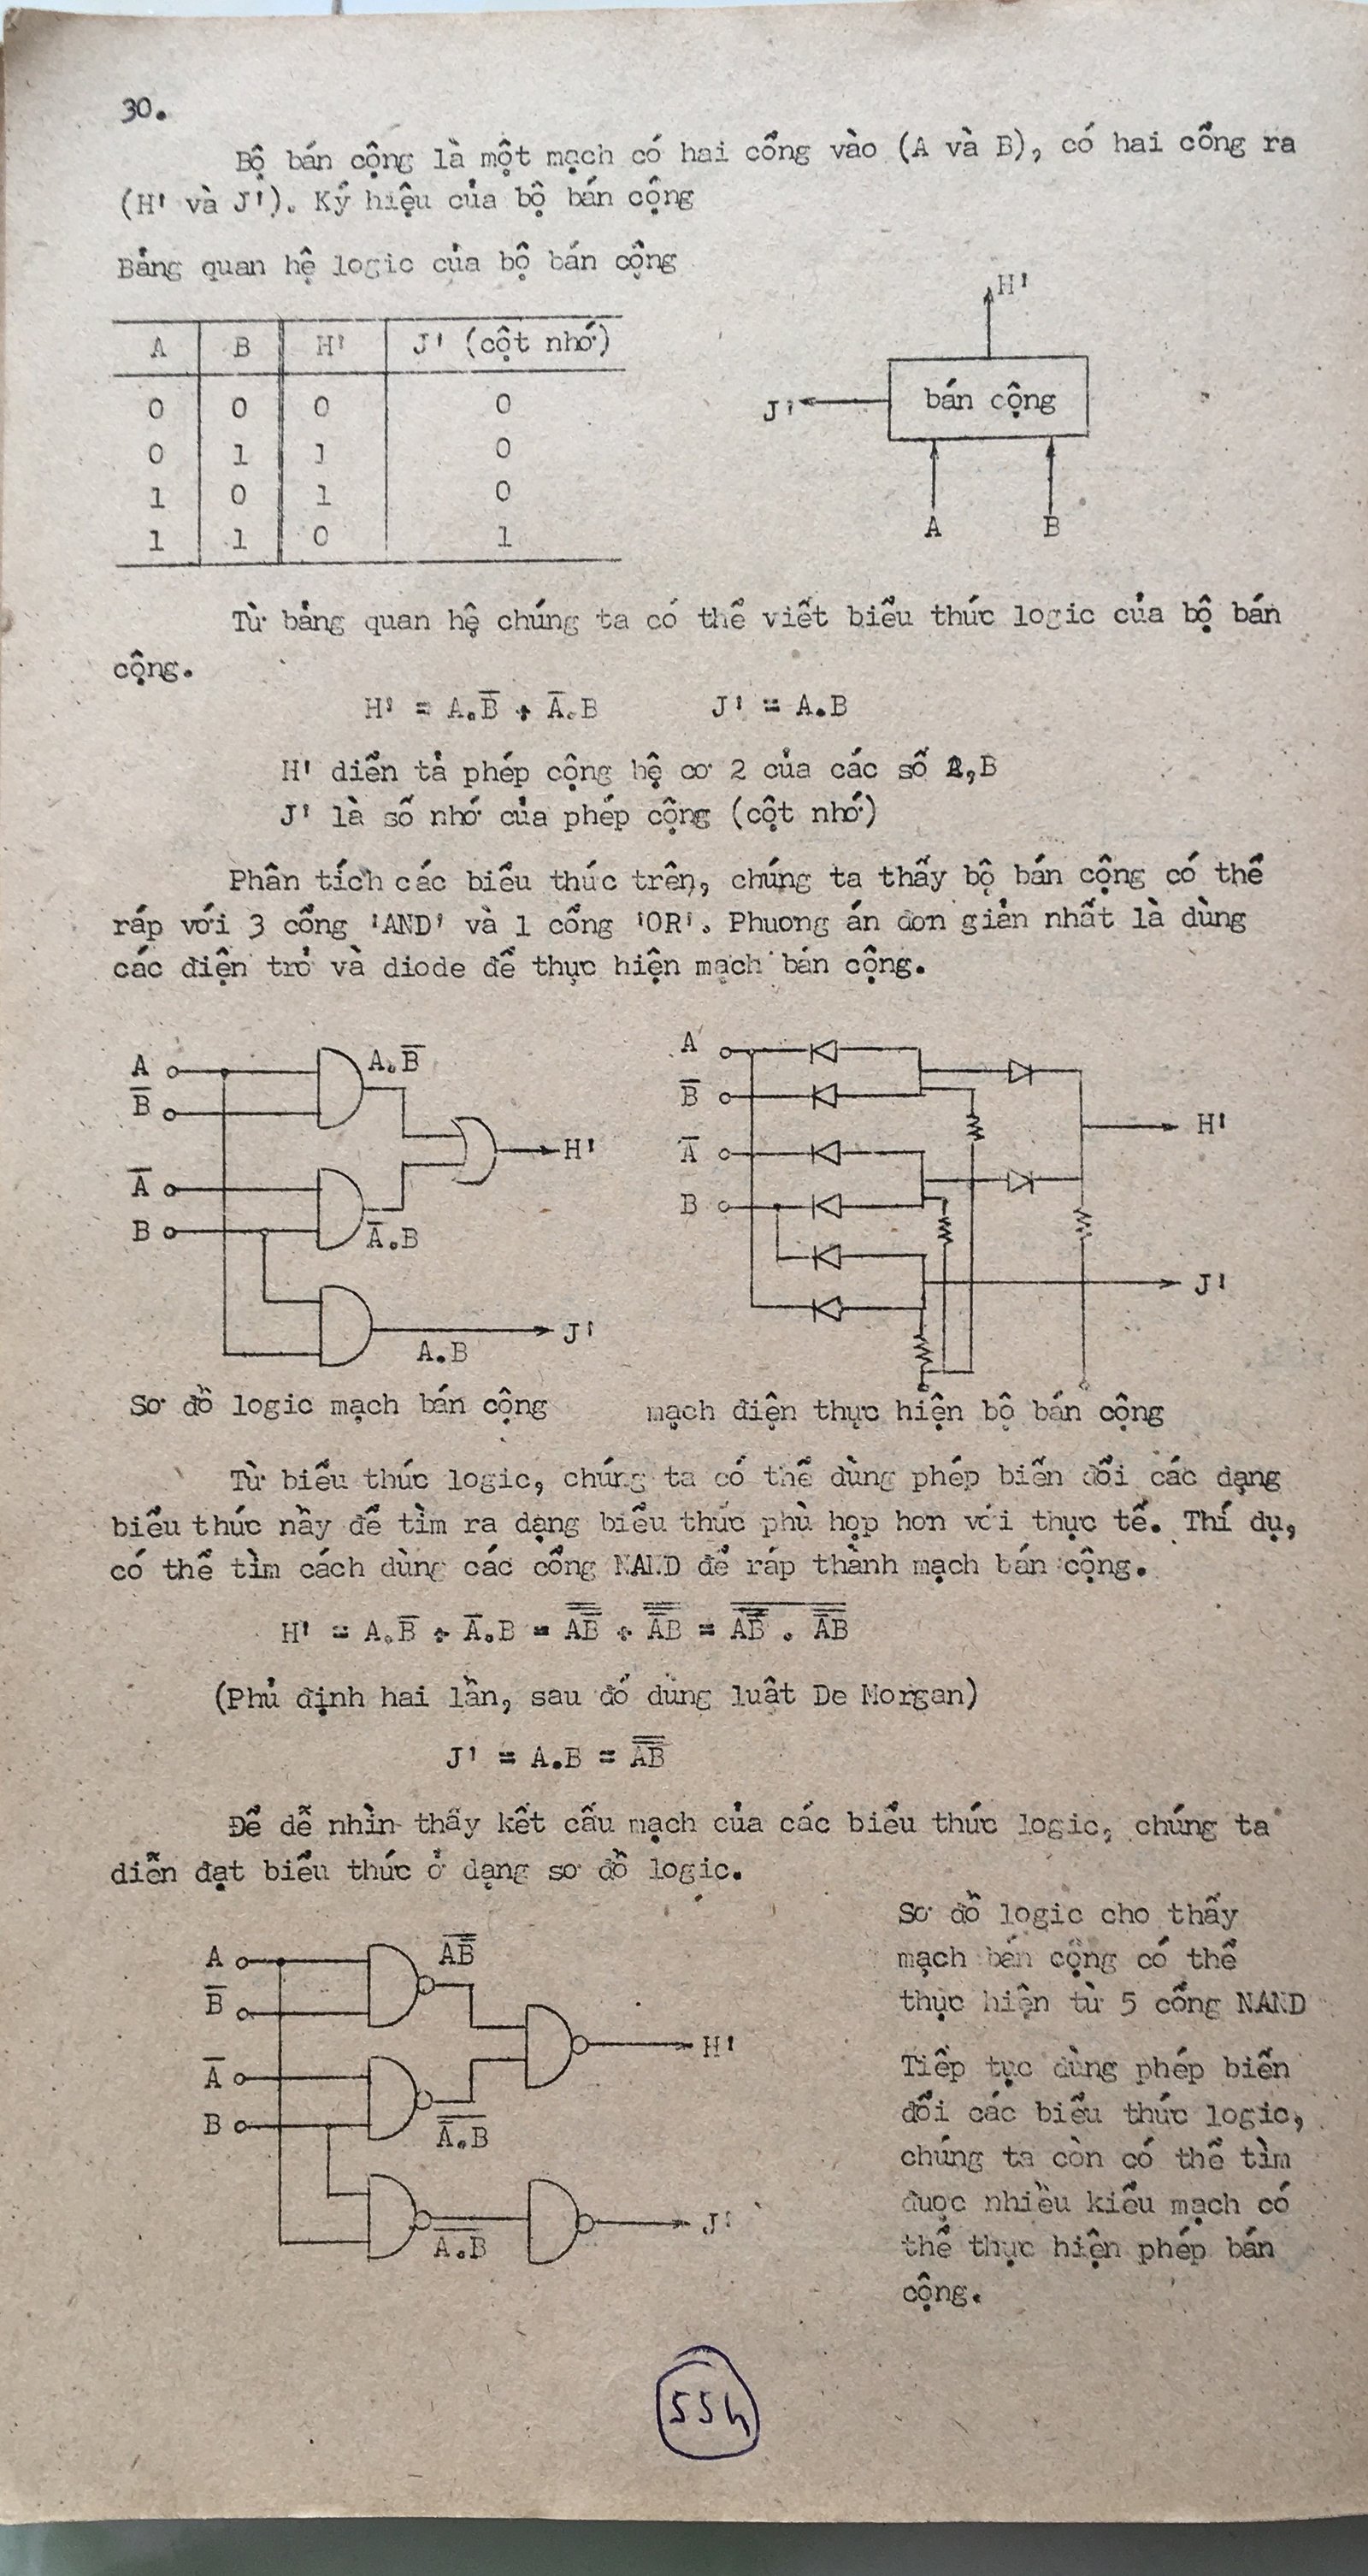 30.
Bộ bán cộng là một mạch có hai cổng vào (A và B), có hai cổng ra
(H' và J'). Ký hiệu của bộ bán cộng
Bảng quan hệ logic của bộ bán cộng
H'
A B H' J' (cột nhớ)
0 0 0 0
0 1 1 0
1 0 1 0
1 1 0 1
J' bán cộng
A B
Từ bảng quan hệ chúng ta có thể viết biểu thức logic của bộ bán
cộng.
H' = A.B̅ + A̅.B J' = A.B
H' diễn tả phép cộng hệ cơ 2 của các số A,B
J' là số nhớ của phép cộng (cột nhớ)
Phân tích các biểu thức trên, chúng ta thấy bộ bán cộng có thể
ráp với 3 cổng 'AND' và 1 cổng 'OR'. Phuơng án đơn giản nhất là dùng
các điện trở và diode để thực hiện mạch bán cộng.
A A.B̅
B̅
H'
A̅
B A̅.B
J'
A.B
A
B̅
H'
A̅
B
J'
Sơ đồ logic mạch bán cộng
mạch điện thực hiện bộ bán cộng
Từ biểu thức logic, chúng ta có thể dùng phép biến đổi các dạng
biểu thức nầy để tìm ra dạng biểu thức phù hợp hơn với thực tế. Thí dụ,
có thể tìm cách dùng các cổng NAND để ráp thành mạch bán cộng.
H' = A.B̅ + A̅.B = A̿B̿̅ + A̿̅B̿ = A̿B̿̅ . A̿̅B̿
(Phủ định hai lần, sau đó dùng luật De Morgan)
J' = A.B = A̿B̿
Để dễ nhìn thấy kết cấu mạch của các biểu thức logic, chúng ta
diễn đạt biểu thức ở dạng sơ đồ logic.
A A̅B̿
B̅
H'
A̅
B A̿.B̅
J'
A̅.̅B̅
Sơ đồ logic cho thấy
mạch bán cộng có thể
thực hiện từ 5 cổng NAND
Tiếp tục dùng phép biến
đổi các biểu thức logic,
chúng ta còn có thể tìm
đuợc nhiều kiểu mạch có
thể thực hiện phép bán
cộng.
55h